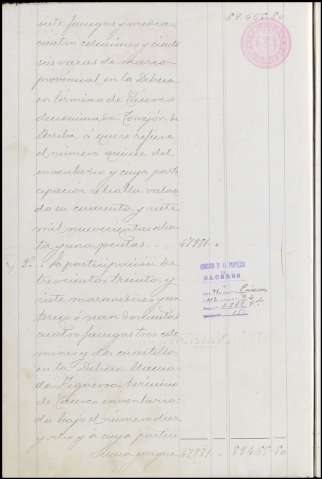 89.455.80
siete fanegas y media
cuatro celemines y ciento
seis varas de marco
provincial en la Dehesa
en término de Cáceres
denominada Torrejón de
Arriba, á que se refiere
el número quince del
inventario y cuya parti-
cipación se halla valora-
da en cuarenta y siete
mil novecientas ochen-
ta y una pesetas. 47.981.
3ª.. La participación de
trescientos treinta y
siete maravedises y un
tercio ó sean doscientas
cuatro fanegas tres cele-
mines y dos cuartillos
en la Dehesa
de Figueroa término
de Cáceres inventaria-
da bajo el número diez
y ocho y á cuya partici-
Suma y sigue 47.981. 89.455.80
CÁCERES